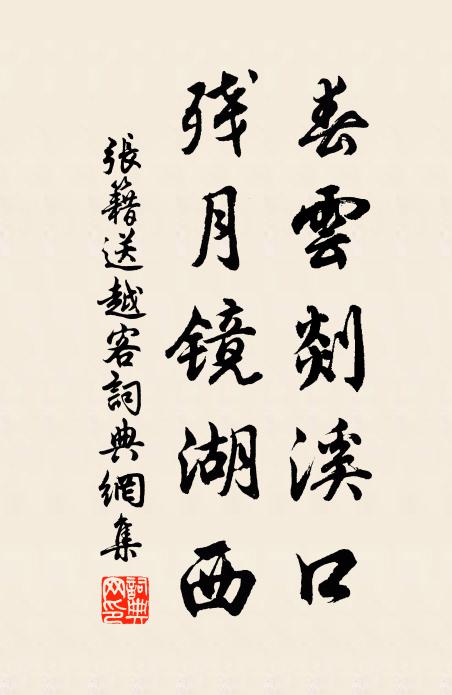 春雲剡溪口
残月镜湖西
張籍送越客詞典網集
詞典网印